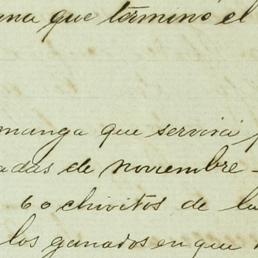 una que terminó el
manga que servirá
adas de noviembre -
60 chivitos de la
los ganados en que